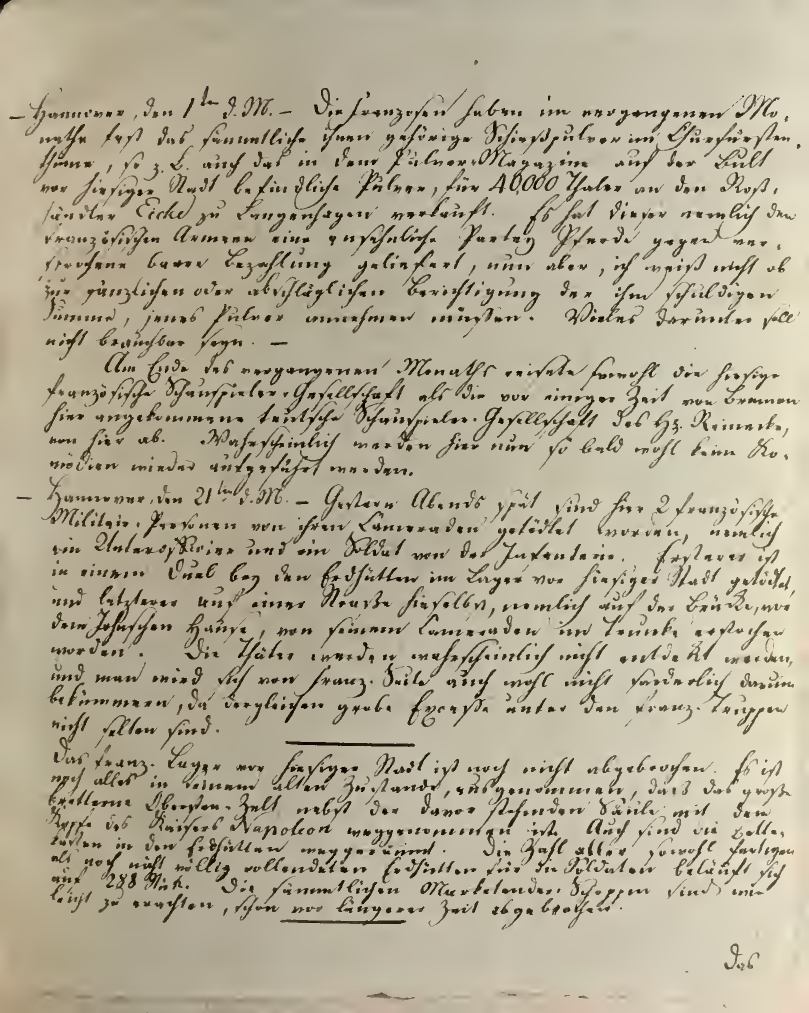 — Hannover, den 1ten d. M. — Die Franzosen haben im vergangenen Mo-
nathe fast das sämmtliche ihnen gehörige Schießpulver im Churfürsten-
thume, so z. B. auch das in dem Pulver-Magazine auf der Bult
vor hiesiger Stadt befindliche Pulver, für 40,000 Thaler an den Roß-
händler Eicke zu Langenhagen verkauft. Es hat dieser nemlich den
französischen Armeen eine ansehnliche Partey Pferde gegen ver-
sprochene baare Bezahlung geliefert, nun aber, ich weiß nicht ob
zur gänzlichen oder abschläglichen Berichtigung der ihm schuldigen
Summe, jenes Pulver annehmen müssen. Vieles darunter soll
nicht brauchbar seyn. —
Am Ende des vergangenen Monaths reisete sowohl die hiesige
französische Schauspieler-Gesellschaft als die vor einiger Zeit von Bremen
hier angekommene teutsche Schauspieler-Gesellschaft des Hz. Reinecke,
von hier ab. Wahrscheinlich werden hier nun so bald wohl keine Ko-
mödien wieder aufgeführt werden.
— Hannover, den 21ten d. M. — Gestern Abends spät sind hier 2 französische
Militair-Personen von ihren Cameraden getödtet worden, nemlich
ein Unterofficier und ein Soldat von der Infanterie. Ersterer ist
in einem Duel bey den Erdhütten im Lager vor hiesiger Stadt getödtet,
und letzterer auf einer Straße hieselbst, nemlich auf der Brücke, vor
dem Hause, von seinem Cameraden im Trunke erstochen
worden. Die Thäter werden wahrscheinlich nicht entdekt werden,
und man wird sich von franz. Seite auch wohl nicht sonderlich darum
bekümmern, da dergleichen grobe Excesse unter den franz. Truppen
nicht selten sind.
Das franz. Lager vor hiesiger Stadt ist noch nicht abgebrochen. Es ist
noch alles in seinem alten Zustande, ausgenommen, dass das große
bretterne Obersten-Zelt nebst der davor stehenden Säule mit dem
Kopfe des Kaisers Napoleon weggenommen ist. Auch sind die Bette-
in den Erdhütten weggeräumt. Die Zahl aller sowohl fertigen
als noch nicht völlig vollendeten Erdhütten für die Soldaten beläuft sich
auf 288 Stük. Die sämmtlichen Marketender-Schoppen sind, wie
leicht zu erachten, schon vor längerer Zeit abgebrochen.
Das